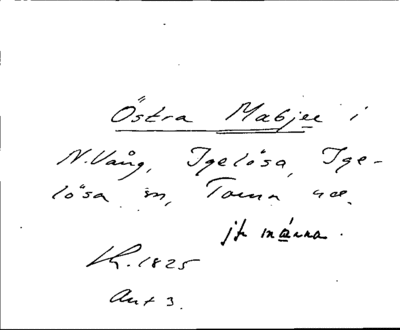 Östra Mabjer i
N. Vång, Igelösa, Ige-
lösa sn, Torna hd.
jfr männa.
Kh. 1825
Ant 3.